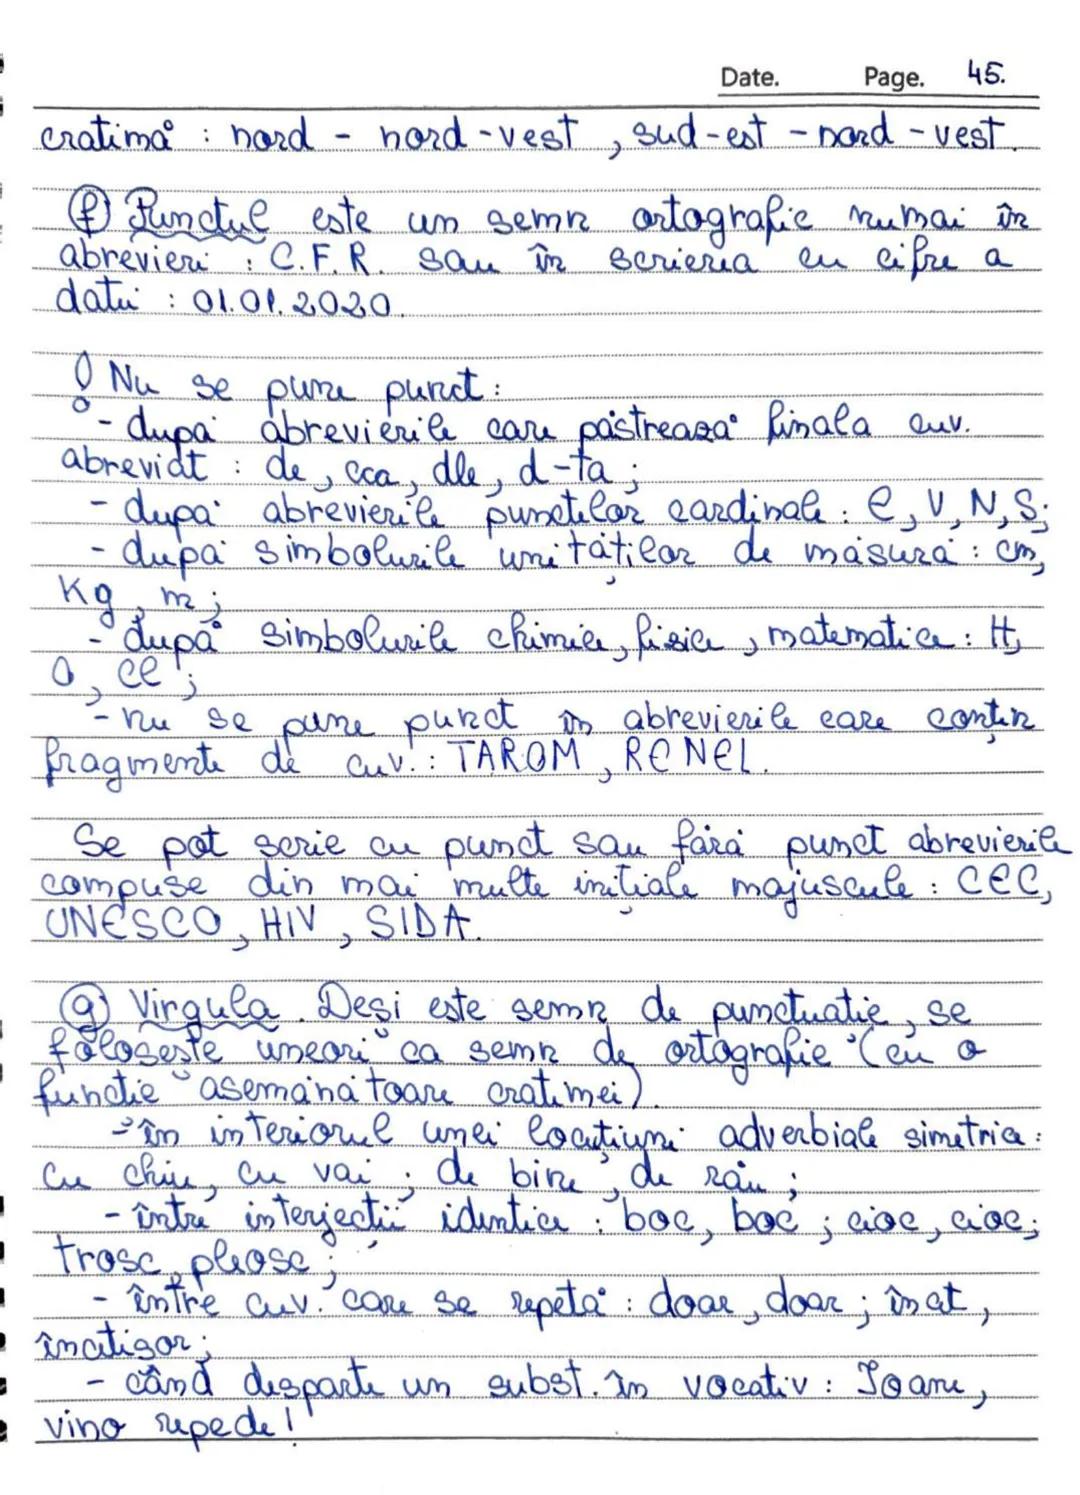 Date. Page. 45.
cratimă : nord - nord-vest, sud-est - nord-vest.
(f) Punctul este un semn ortografic numai în
abrevieri : C.F.R. sau în scrierea cu cifre a
datei : 01.01.2020.
! Nu se pune punct :
- după abrevierile care păstrează finala cuv.
abreviat : dc, cca, dle, d-ta ;
- după abrevierile punctelor cardinale : E, V, N, S;
- după simbolurile unităților de măsură : cm,
Kg, m ;
- după simbolurile chimice, fizice, matematice : H,
O, Cl ;
- nu se pune punct în abrevierile care conțin
fragmente de cuv. : TAROM, RENEL.
Se pot scrie cu punct sau fără punct abrevierile
compuse din mai multe inițiale majuscule : CEC,
UNESCO, HIV, SIDA.
(g) Virgula. Deși este semn de punctuație, se
folosește uneori ca semn de ortografie (cu o
funcție asemănătoare cratimei).
- în interiorul unei locuțiuni adverbiale simetrice :
cu chiu, cu vai ; de bine, de rău ;
- între interjecții identice : boc, boc ; cioc, cioc;
trosc, pleosc ;
- între cuv. care se repetă : doar, doar ; încet,
încetișor ;
- când desparte un subst. în vocativ : Ioane,
vino repede!